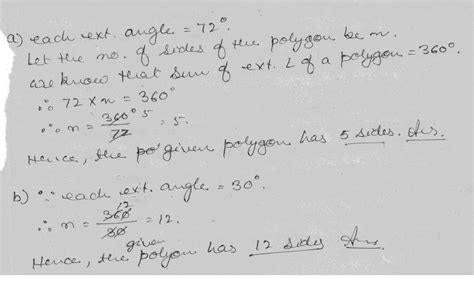 a) each ext. angle = 72°.
Let the no. of sides of the polygon be n.
we know that sum of ext. ∠ of a polygon = 360°.
∴ 72 × n = 360°
∴ n = 360° / 72 5 = 5.
Hence, the po given polygon has 5 sides. Ans.
b) ∵ each ext. angle = 30°.
∴ n = 360 / 30 12 = 12.
Hence, the given polyon has 12 sides Ans.